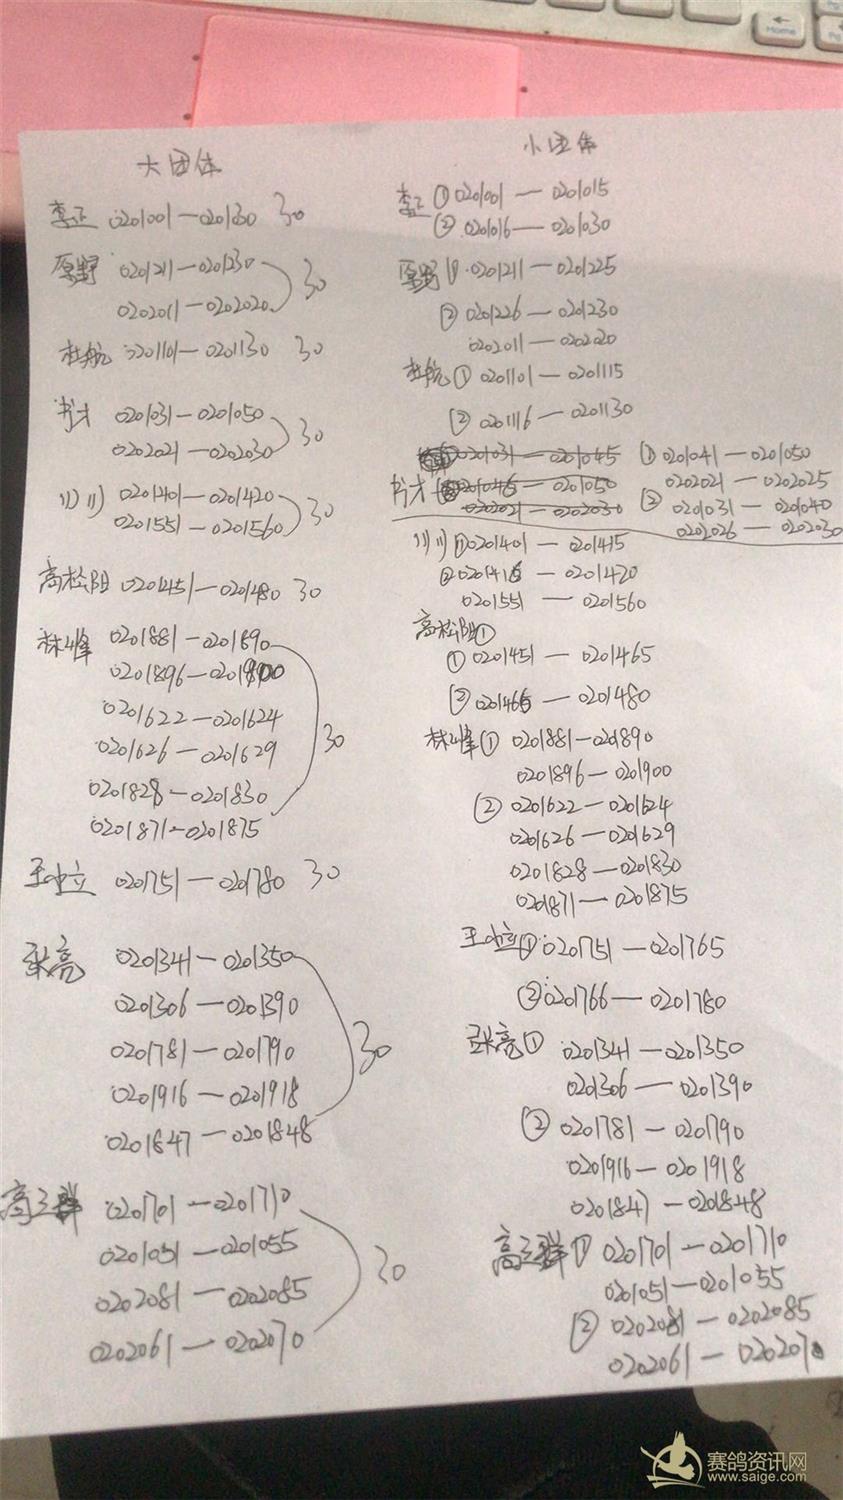 大团体
李正 0201001—0201030 30
原野 0201211—0201230
0202011—0202020 30
杜航 0201101—0201130 30
书才 0201031—0201050
0202021—0202030 30
0201401—0201420
0201551—0201560 30
高松阳 0201451—0201480 30
林峰 0201881—0201890
0201896—0201900
0201622—0201624
0201626—0201629 30
0201828—0201830
0201871—0201875
王中立 0201751—0201780 30
张亮 0201341—0201350
0201306—0201390
0201781—0201790 30
0201916—0201918
0201847—0201848
高立群 0201701—0201710
0201051—0201055
0202081—0202085 30
0202061—0202070
小团体
李正 ① 0201001—0201015
② 0201016—0201030
原野 ① 0201211—0201225
② 0201226—0201230
0202011—0202020
杜航 ① 0201101—0201115
② 0201116—0201130
0201031—0201045
书才 0201046—0201050
0202021—0202030
① 0201041—0201050
0202021—0202025
② 0201031—0201040
0202026—0202030
① 0201401—0201415
② 0201416—0201420
0201551—0201560
高松阳①
① 0201451—0201465
② 0201466—0201480
林峰 ① 0201881—0201890
0201896—0201900
② 0201622—0201624
0201626—0201629
0201828—0201830
0201871—0201875
王中立 ① 0201751—0201765
② 0201766—0201780
张亮 ① 0201341—0201350
0201306—0201390
② 0201781—0201790
0201916—0201918
0201847—0201848
高立群 ① 0201701—0201710
0201051—0201055
② 0202081—0202085
0202061—0202070
Home
Pg
赛鸽资讯网
www.saige.com